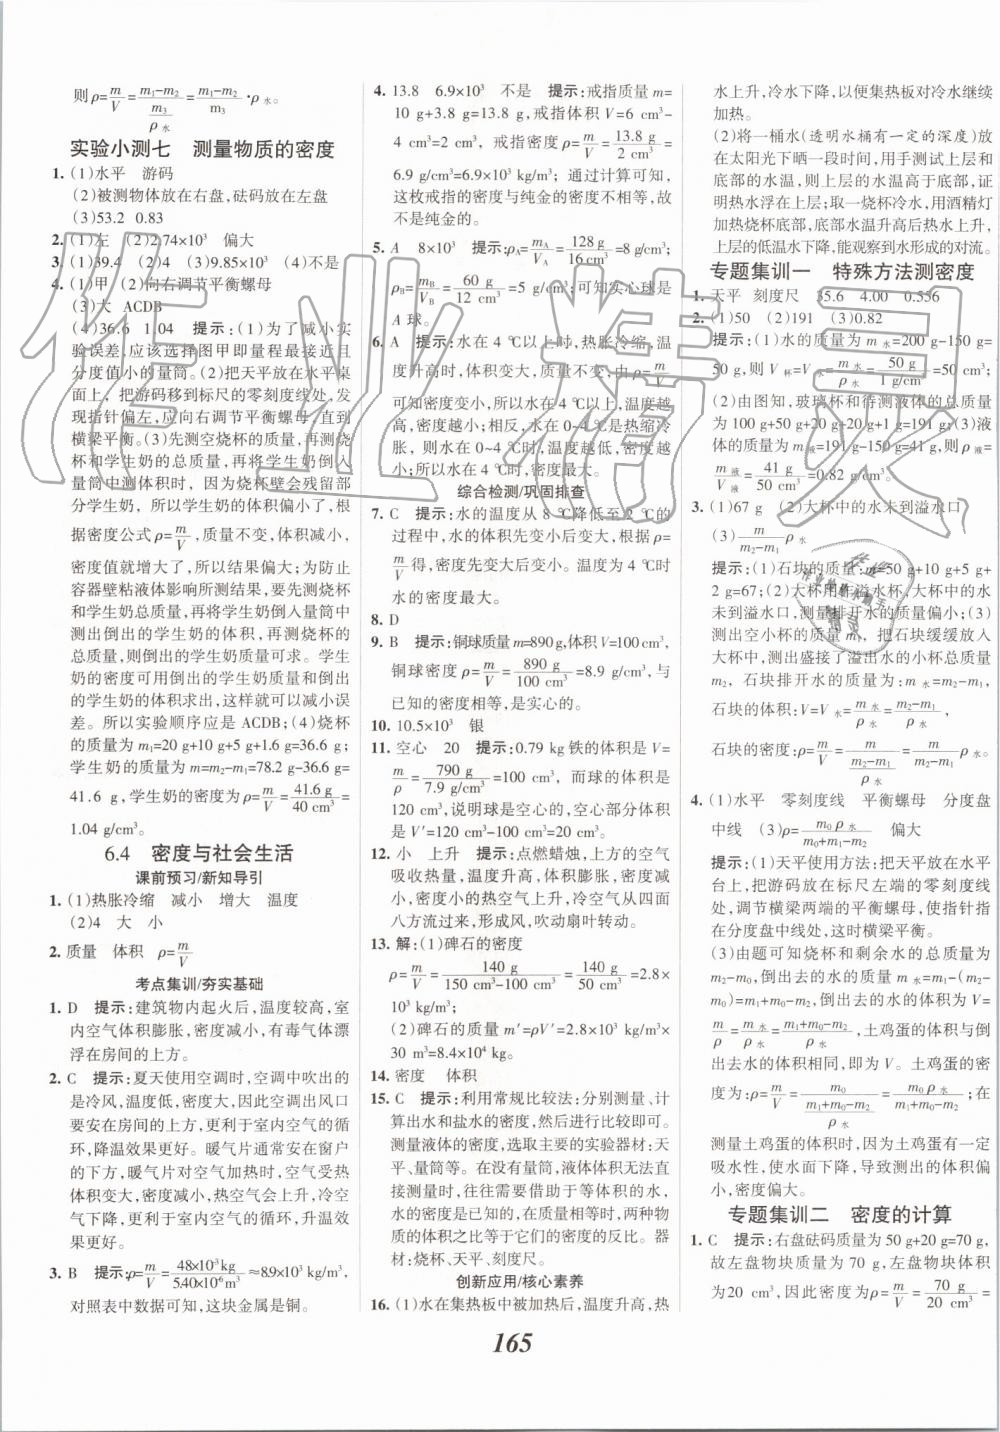 则 ρ=m/V=(m₁-m₂)/(m₃/ρ水)=(m₁-m₂)/m₃·ρ水。
实验小测七 测量物质的密度
1. (1)水平 游码
(2)被测物体放在右盘,砝码放在左盘
(3)53.2 0.83
2. (1)左 (2)2.74×10³ 偏大
3. (1)39.4 (2)4 (3)9.85×10³ (4)不是
4. (1)甲 (2)向右调节平衡螺母
(3)大 ACDB
(4)36.6 1.04 提示:(1)为了减小实
验误差,应该选择图甲即量程最接近且
分度值小的量筒。(2)把天平放在水平桌
面上,把游码移到标尺的零刻度线处,发
现指针偏左,应向右调节平衡螺母,直到
横梁平衡。(3)先测空烧杯的质量,再测烧
杯和学生奶的总质量,再将学生奶倒入
量筒中测体积时,因为烧杯壁会残留部
分学生奶,所以学生奶的体积偏小了,根
据密度公式ρ=m/V,质量不变,体积减小,
密度值就大了,所以结果偏大;为防止
容器壁粘液体影响所测结果,要测烧杯
和学生奶总质量,再将学生奶倒入量筒中
测出倒出的学生奶的体积,再测烧杯的
总质量,则倒出的学生奶质量可求。学生
奶的密度可用倒出的学生奶质量和倒出
的学生奶的体积求出,这样就可以减小误
差。所以实验顺序应是ACDB;(4)烧杯
的质量为m₁=20 g+10 g+5 g+1.6 g=36.6 g;
学生奶的质量为m=m₂-m₁=78.2 g-36.6 g=
41.6 g,学生奶的密度为ρ=m/V=41.6 g/40 cm³=
1.04 g/cm³。
6.4 密度与社会生活
课前预习/新知导引
1. (1)热胀冷缩 减小 增大 温度
(2)4 大 小
2. 质量 体积 ρ=m/V
考点集训/夯实基础
1. D 提示:建筑物内起火后,温度较高,室
内空气体积膨胀,密度减小,有毒气体漂
浮在房间的上方。
2. C 提示:夏天使用空调时,空调中吹出的
是冷风,温度低,密度大,因此空调出风口
要安在房间上方,更利于室内空气的循
环,降温效果好。暖气片对空气加热时,空气受热
体积变大,密度减小,热空气会上升,冷空
气下降,更利于室内空气的循环,升温
效果更好。
3. B 提示:ρ=m/V=48×10³kg/5.40×10⁶m³≈8.9×10³kg/m³,
对照表中数据可知,这块金属是铜。
4. 13.8 6.9×10³ 不是 提示:戒指质量m=
10 g+3.8 g=13.8 g,戒指体积V=6 cm³-
4 cm³=2 cm³,戒指密度ρ=m/V=13.8 g/2 cm³=
6.9 g/cm³=6.9×10³ kg/m³;通过计算可知,
这枚戒指的密度与纯金的密度不相等,故
不是纯金的。
5. A 8×10³ 提示:ρA=mA/VA=128 g/16 cm³=8 g/cm³;
ρB=mB/VB=60 g/12 cm³=5 g/cm³;可知实心球是
A球。
6. A 提示:水在4 ℃以上时,热胀冷缩,温
度升高,体积变大,质量不变,由ρ=m/V
可知密度变小,所以水在4 ℃时,温度越
高,密度越小;相反,水在0~4 ℃是热缩冷
胀,则水在0~4 ℃时,温度越低,密度越
小;所以水在4 ℃时,密度最大。
综合检测/巩固排查
7. C 提示:水的温度从8 ℃降低至2 ℃的
过程中,水的体积先变小后变大,根据ρ=
m/V得,密度先变大后变小。温度为4 ℃时
水的密度最大。
8. D
9. B 提示:铜球质量m=890 g,体积V=100 cm³,
铜球密度ρ=m/V=890 g/100 cm³=8.9 g/cm³,与
已知的密度相等,是实心的。
10. 10.5×10³ 银
11. 空心 20 提示:0.79 kg铁的体积是V=
m/ρ=790 g/7.9 g/cm³=100 cm³,而球的体积是
120 cm³,说明球是空心的,空心部分体积
是V′=120 cm³-100 cm³=20 cm³。
12. 小 上升 提示:点燃蜡烛,上方的空气
吸收热量,温度升高,体积膨胀,密度减
小,密度小的热空气上升,冷空气从四面
八方流过来,形成风,吹动扇叶转动。
13. 解:(1)碑石的密度
ρ=m/V=140 g/(150 cm³-100 cm³)=140 g/50 cm³=2.8×
10³ kg/m³;
(2)碑石的质量m′=ρV′=2.8×10³kg/m³×
30 m³=8.4×10⁴ kg。
14. 密度 体积
15. C 提示:利用常规比较法:分别测量、计
算出水和盐水的密度,然后进行比较即可。
测量液体的密度,选取主要的实验器材:天
平、量筒、烧杯。在没有量筒,液体体积无法直
接测量时,往往需要借助于等体积的水,水
的密度是已知的,在体积相等时,两种物质
的质量之比等于它们的密度之比。器
材:烧杯、天平、刻度尺。
创新应用/核心素养
16. (1)水在集热板中被加热后,温度升高,热
水上升,冷水下降,以便集热板对冷水继续
加热。
(2)将一桶水(透明水桶有一定的深度)放
在太阳光下晒一段时间,用手测试上层和
底部的水温,则上层的水温高于底部,证
明热水浮在上层;取一烧杯冷水,用酒精灯
加热烧杯底部,底部水温升高后向上升,
上层的低温水下降,能观察到水形成的对流。
专题集训一 特殊方法测密度
1. 天平 刻度尺 35.6 4.00 0.556
2. (1)50 (2)191 (3)0.82
提示:(1)水的质量为m水=200 g-150 g=
50 g,则V杯=V水=m水/ρ水=50 g/1 g/cm³=50 cm³;
(2)由图知,玻璃杯和待测液体的总质量
为100 g+50 g+20 g+20 g+1 g=191 g;(3)液
体的质量为m液=191 g-150 g=41 g;则ρ液=
m液/V液=41 g/50 cm³=0.82 g/cm³。
3. (1)67 g (2)大杯中的水未到溢水口
(3)m/(m₂-m₁) ρ水
提示:(1)石块的质量:m=50 g+10 g+5 g+
2 g=67;(2)大杯用作溢水杯,大杯中的水
未到溢水口,测量排开水的质量偏小;(3)
测出空小杯的质量m₁,把石块缓缓放入
大杯中,测出盛接了溢出水的小杯总质量
m₂,石块排开水的质量为:m水=m₂-m₁,
石块的体积:V=V水=m水/ρ水=(m₂-m₁)/ρ水,
石块的密度:ρ=m/V=m/((m₂-m₁)/ρ水)=m/(m₂-m₁) ρ水。
4. (1)水平 零刻度线 平衡螺母 分度盘
中线 (3)ρ=m₀ρ水/(m₀+m₁-m₂) 偏大
提示:(1)天平使用方法:把天平放在水平
台上,把游码放在标尺左端的零刻度线
处,调节横梁两端的平衡螺母,使指针指
在分度盘中线处,这时天平横梁平衡。
(3)由题可知烧杯和剩余水的总质量为
m₂-m₀,倒出去的水的质量m水=m₁-(m₂-
m₀)=m₁+m₀-m₂,倒出去水的体积为V=
m/ρ=m水/ρ水=(m₁+m₀-m₂)/ρ水,土鸡蛋的体积与倒
出去水的体积相同,即为V。土鸡蛋的密
度为:ρ=m/V=m₀/((m₁+m₀-m₂)/ρ水)=m₀ρ水/(m₁+m₀-m₂);在
测量土鸡蛋的体积时,因为土鸡蛋有一定
吸水性,使水面下降,导致测出的体积偏
小,密度偏大。
专题集训二 密度的计算
1. C 提示:右盘砝码质量为50 g+20 g=70 g,
故左盘物块质量为70 g,左盘物块体积
为20 cm³,因此密度为ρ=m/V=70 g/20 cm³=
165
作业精灵